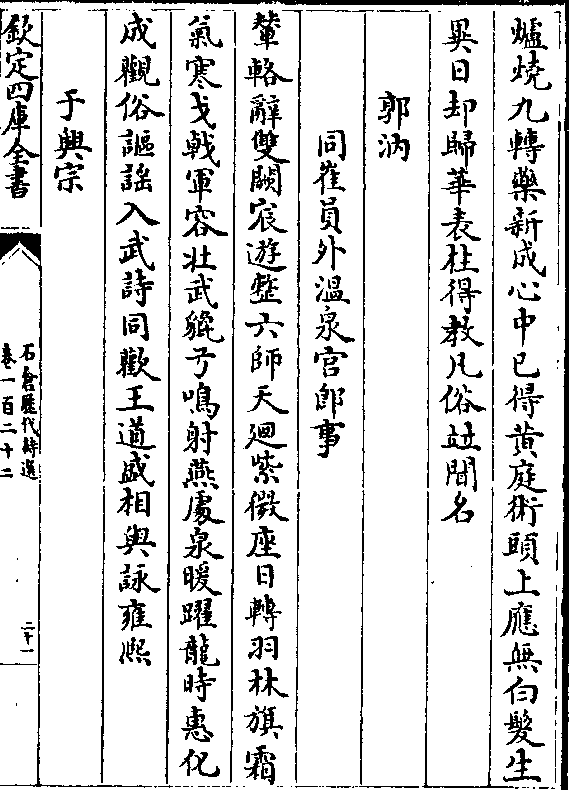 爐燒九轉藥新成心中已得黄庭術頭上應無白髮生
異日却歸華表柱得教凡俗竝聞名
郭汭
同崔員外温泉宫即事
輦輅辭雙闕宸遊整六師天廻紫微座日轉羽林旗霜
氣寒戈戟軍容壯武貔弓鳴射燕處泉暖躍龍時惠化
成觀俗謳謡入武詩同歡王道盛相與詠雍熙
于興宗
欽定四庫全書
石倉歷代詩選
卷一百二十二
二十一